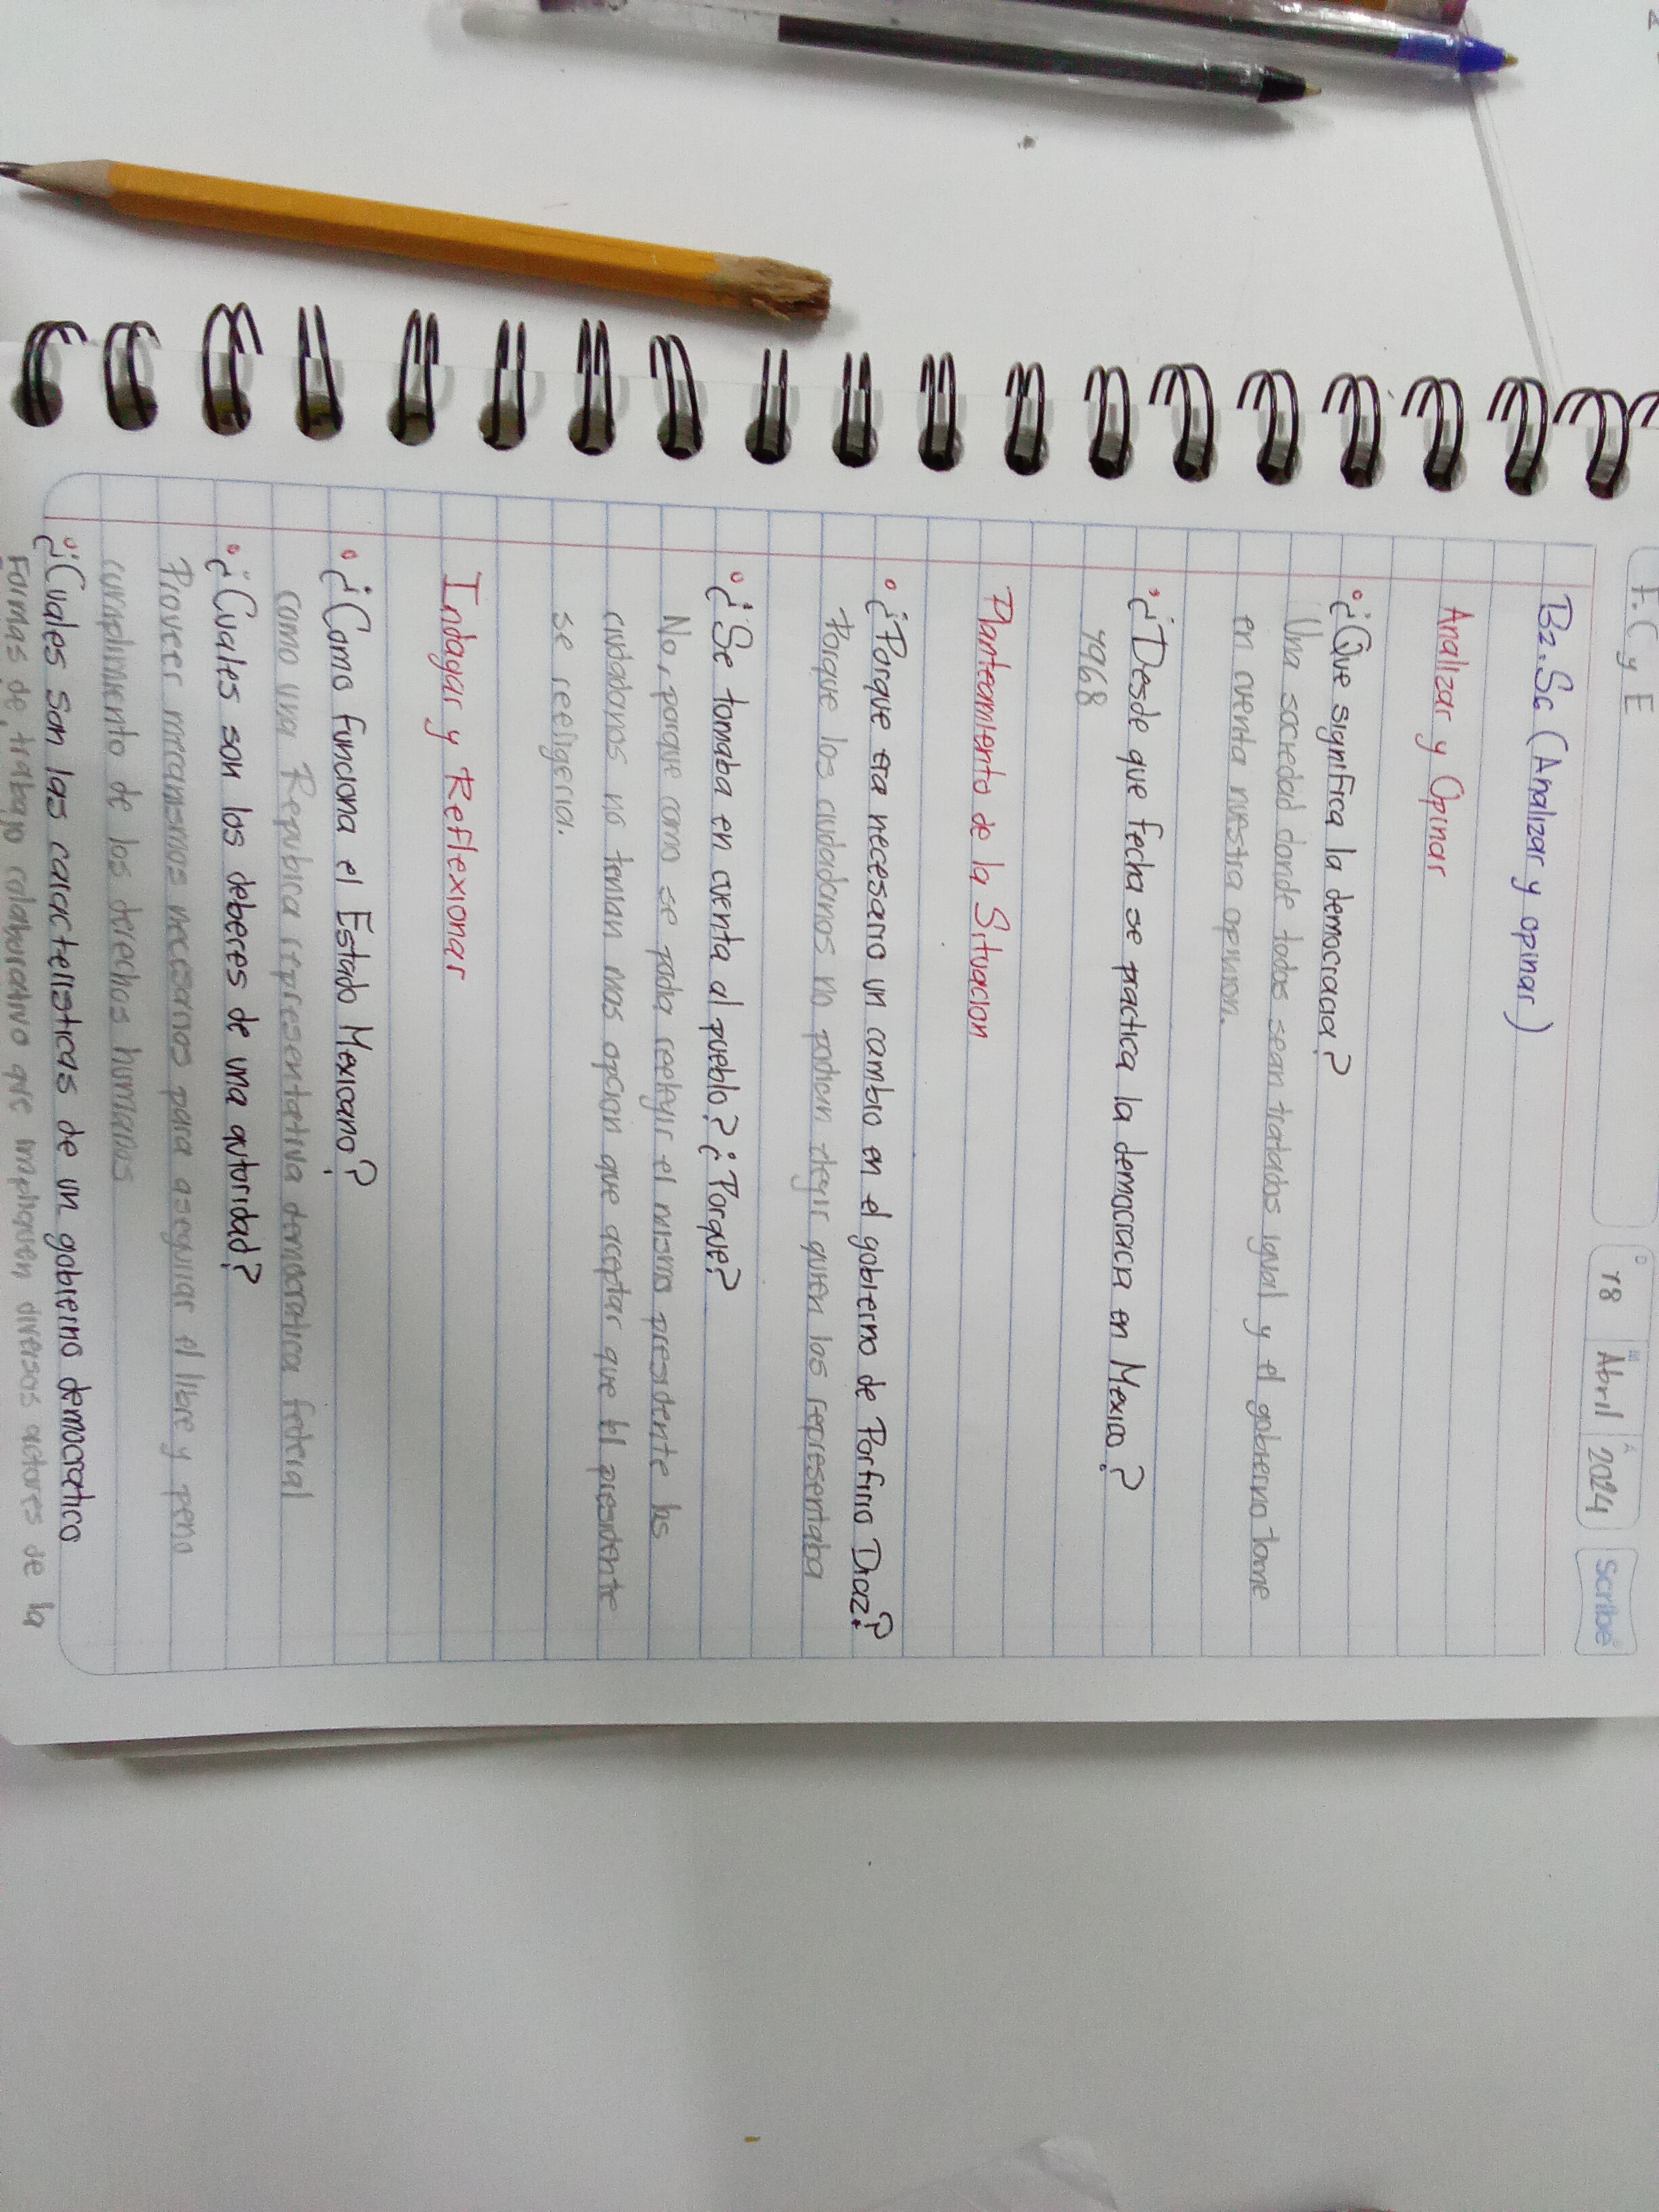 F. C y E
D 18 M Abril A 2024 Scribe
B2. S6 (Analizar y opinar)
Analizar y Opinar
° ¿Que significa la democracia?
Una sociedad donde todos sean tratados igual y el gobierno tome
en cuenta nuestra opinion.
° ¿Desde que fecha se practica la democracia en Mexico?
1968
Planteamiento de la Situacion
° ¿Porque era necesario un cambio en el gobierno de Porfirio Diaz?
Porque los ciudadanos no podian elegir quien los representaba
° ¿Se tomaba en cuenta al pueblo? ¿Porque?
No, porque como se podia reelegir el mismo presidente los
ciudadanos no tenian mas opcion que aceptar que el presidente
se reeligeria.
Indagar y Reflexionar
° ¿Como funciona el Estado Mexicano?
como una Republica representativa democratica federal
° ¿Cuales son los deberes de una autoridad?
Proveer mecanismos necesarios para asegurar el libre y peno
cumplimiento de los derechos humanos
° ¿Cuales son las caracteristicas de un gobierno democratico
Formas de trabajo colaborativo que impliquen diversos actores de la